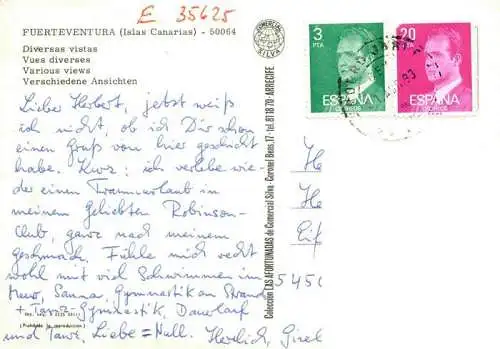 E 35625
FUERTEVENTURA (Islas Canarias) - 50064
Diversas vistas
Vues diverses
Various views
Verschiedene Ansichten
COMERCIAL
SILVA
3
PTA
ESPAÑA
CORREOS
20
PTA
ESPAÑA
CORREOS
Lieber Herbert, jetzt weiß
ich nicht, ob ich Dir schon
einen Gruß von hier geschickt
habe. Kurz: ich verlebe wie-
der einen Traumurlaub in
meinem geliebten Robinson-
Club, ganz nach meinem
Geschmack. Fühle mich recht
wohl mit viel Schwimmen im
Meer, Sauna, Gymnastik am Strand
+ Tanz-Gymnastik, Dauerlauf
und Tanz. Liebe = Null. Herzlich, Gisel
(Prohibida la reproducción)
Colección LAS AFORTUNADAS de Comercial Silva - Coronel Bens, 17 - tel. 81 18 70 - ARRECIFE
He
He
Eif
5450